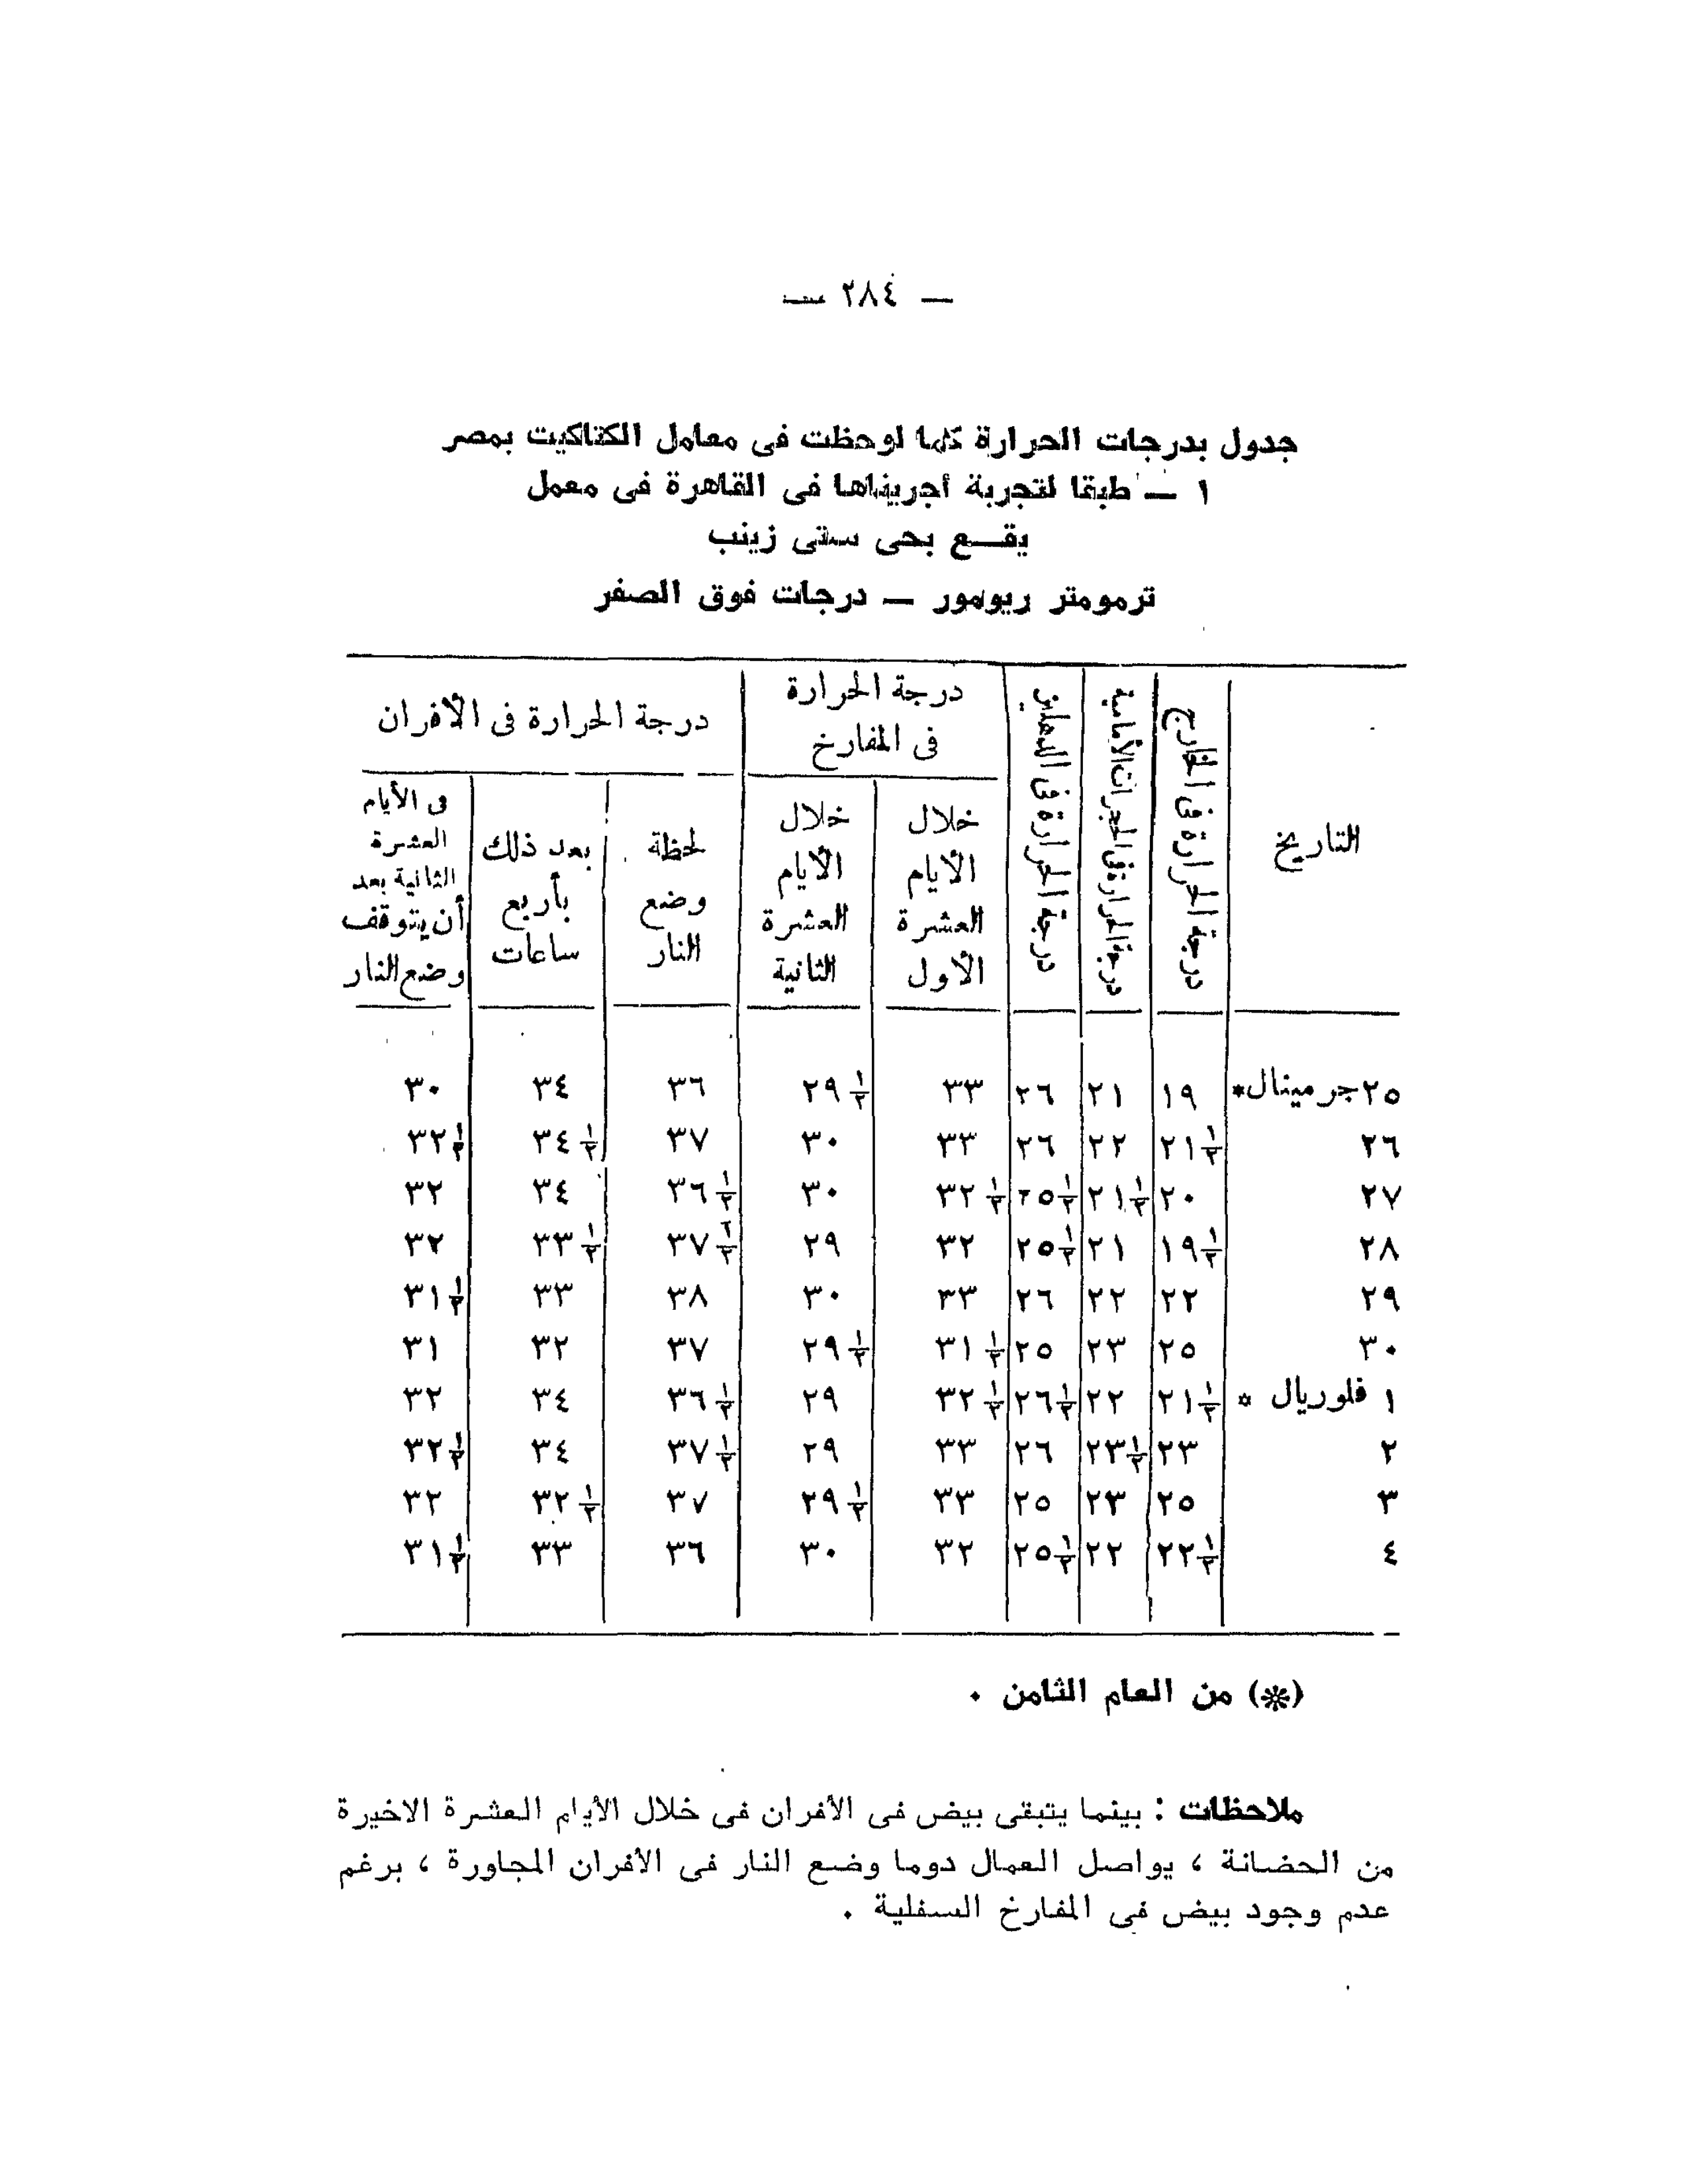 — ٢٨٤ —
جدول بدرجات الحرارة كما لوحظت فى معامل الكتاكيت بمصر
١ — طبقا لتجربة أجريناها فى القاهرة فى معمل
يقـــع بحى ستى زينب
ترمومتر ريومور — درجات فوق الصفر
التاريخ
درجة الحرارة فى الخارج
درجة الحرارة فى الحجرات الأمامية
درجة الحرارة فى الدهليز
درجة الحرارة
فى المفارخ
خلال
الأيام
العشرة
الأول
خلال
الأيام
العشرة
الثانية
درجة الحرارة فى الأفران
لحظة
وضع
النار
بعد ذلك
بأربع
ساعات
فى الأيام
العشرة
الثانية بعد
أن يتوقف
وضع النار
٢٥ جرمينال* ١٩ ٢١ ٢٦ ٣٣ ٢٩ ١/٢ ٣٦ ٣٤ ٣٠
٢٦ ٢١ ١/٢ ٢٢ ٢٦ ٣٣ ٣٠ ٣٧ ٣٤ ١/٢ ٣٢ ١/٢
٢٧ ٢٠ ٢١ ١/٢ ٢٥ ١/٢ ٣٢ ١/٢ ٣٠ ٣٦ ١/٢ ٣٤ ٣٢
٢٨ ١٩ ١/٢ ٢١ ٢٥ ١/٢ ٣٢ ٢٩ ٣٧ ١/٢ ٣٣ ١/٢ ٣٢
٢٩ ٢٢ ٢٢ ٢٦ ٣٣ ٣٠ ٣٨ ٣٣ ٣١ ١/٢
٣٠ ٢٥ ٢٣ ٢٥ ٣١ ١/٢ ٢٩ ١/٢ ٣٧ ٣٢ ٣١
١ فلوريال * ٢١ ١/٢ ٢٢ ٢٦ ١/٢ ٣٢ ١/٢ ٢٩ ٣٦ ١/٢ ٣٤ ٣٢
٢ ٢٣ ٢٣ ١/٢ ٢٦ ٣٣ ٢٩ ٣٧ ١/٢ ٣٤ ٣٢ ١/٢
٣ ٢٥ ٢٣ ٢٥ ٣٣ ٢٩ ١/٢ ٣٧ ٣٢ ١/٢ ٣٢
٤ ٢٢ ١/٢ ٢٢ ٢٥ ١/٢ ٣٢ ٣٠ ٣٦ ٣٣ ٣١ ١/٢
(*) من العام الثامن .
ملاحظات : بينما يتبقى بيض فى الأفران فى خلال الأيام العشرة الاخيرة
من الحضانة ، يواصل العمال دوما وضع النار فى الأفران المجاورة ، برغم
عدم وجود بيض فى المفارخ السفلية .